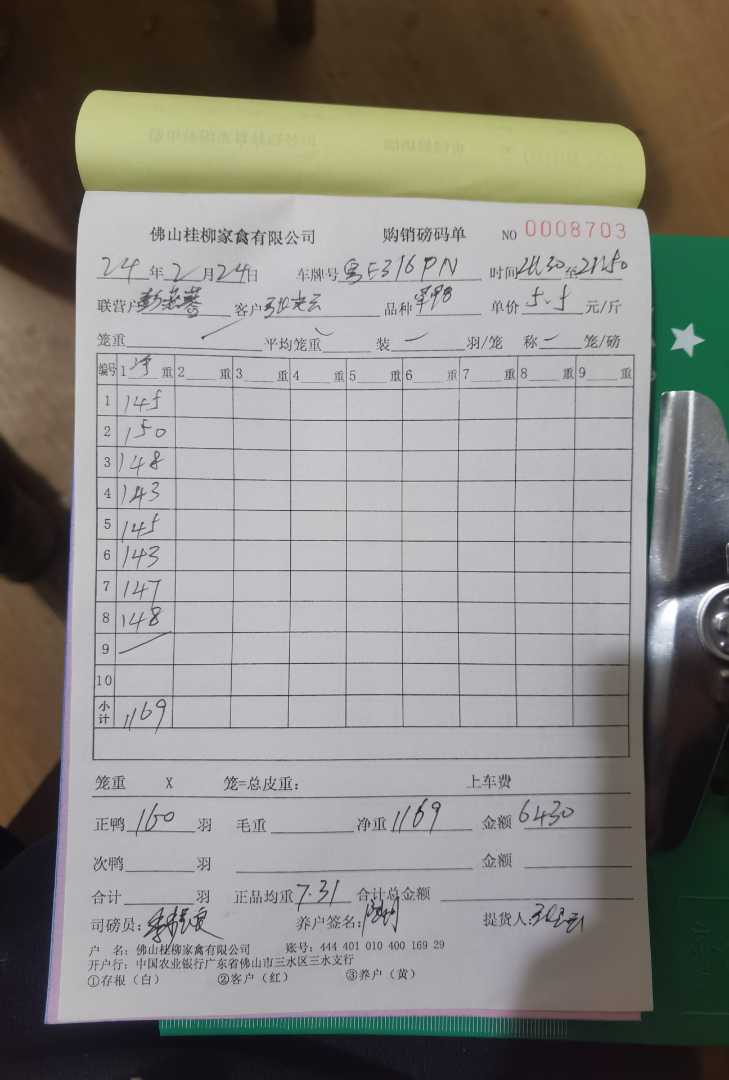 佛山桂柳家禽有限公司 购销磅码单 NO 0008703
24年2月24日 车牌号粤E316PN 时间21:30至21:50
联营户 客户 品种 单价5.5元/斤
笼重 平均笼重 装一羽/笼 称一笼/磅
编号 1净重 2重 3重 4重 5重 6重 7重 8重 9重
1 145
2 150
3 148
4 143
5 145
6 143
7 147
8 148
9
10
小计 1169
笼重 X 笼=总皮重: 上车费
正鸭160羽 毛重 净重1169 金额6430
次鸭 羽 金额
合计 羽 正品均重7.31 合计总金额
司磅员: 养户签名: 提货人:
户 名: 佛山桂柳家禽有限公司 账号: 444 401 010 400 169 29
开户行: 中国农业银行广东省佛山市三水区三水支行
①存根(白) ②客户(红) ③养户(黄)